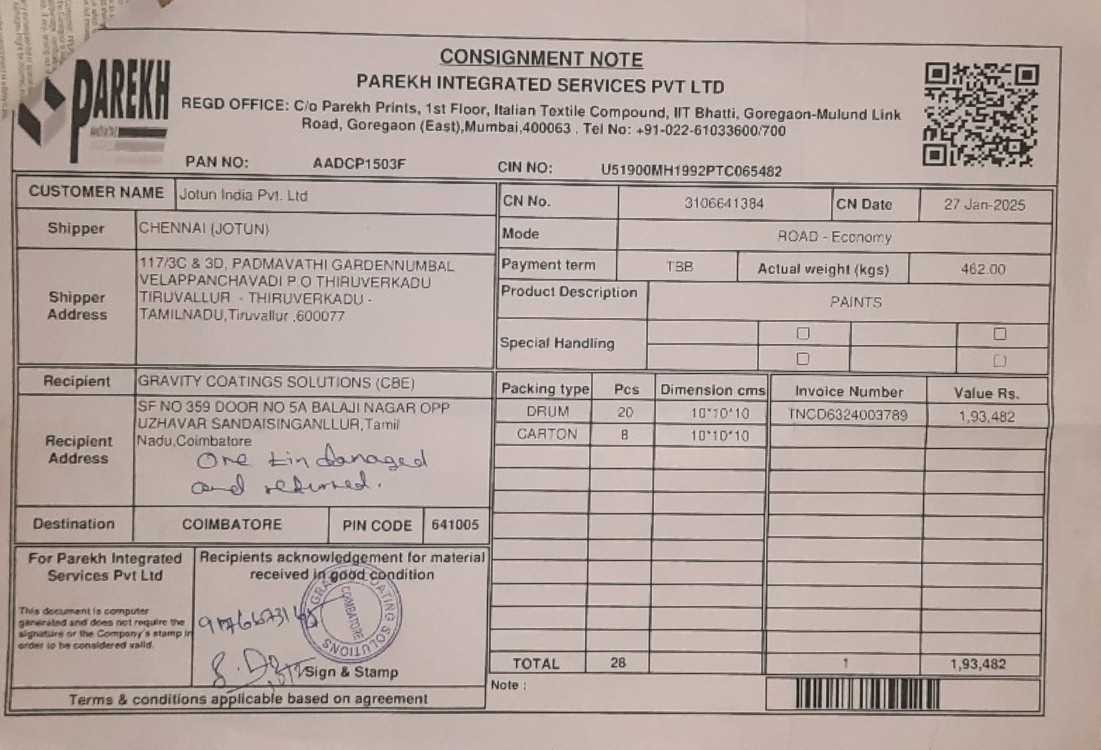 CONSIGNMENT NOTE
PAREKH
PAREKH INTEGRATED SERVICES PVT LTD
REGD OFFICE: C/o Parekh Prints, 1st Floor, Italian Textile Compound, IIT Bhatti, Goregaon-Mulund Link
Road, Goregaon (East),Mumbai,400063 . Tel No: +91-022-61033600/700
PAN NO: AADCP1503F CIN NO: U51900MH1992PTC065482
CUSTOMER NAME Jotun India Pvt. Ltd
CN No. 3106641384 CN Date 27 Jan-2025
Shipper CHENNAI (JOTUN)
Mode ROAD - Economy
Shipper Address
117/3C & 3D, PADMAVATHI GARDENNUMBAL
VELAPPANCHAVADI P.O THIRUVERKADU
TIRUVALLUR - THIRUVERKADU -
TAMILNADU,Tiruvallur ,600077
Payment term TBB Actual weight (kgs) 462.00
Product Description PAINTS
Special Handling
Recipient GRAVITY COATINGS SOLUTIONS (CBE)
Recipient Address
SF NO 359 DOOR NO 5A BALAJI NAGAR OPP
UZHAVAR SANDAISINGANLLUR,Tamil
Nadu,Coimbatore
One tin damaged
and returned.
Packing type Pcs Dimension cms Invoice Number Value Rs.
DRUM 20 10*10*10 TNCD6324003789 1,93,482
CARTON 8 10*10*10
Destination COIMBATORE PIN CODE 641005
For Parekh Integrated
Services Pvt Ltd
This document is computer
generated and does not require the
signature or the Company's stamp in
order to be considered valid.
Recipients acknowledgement for material
received in good condition
GRAVITY COATING SOLUTIONS
COIMBATORE
Sign & Stamp
TOTAL 28 1 1,93,482
Note :
Terms & conditions applicable based on agreement